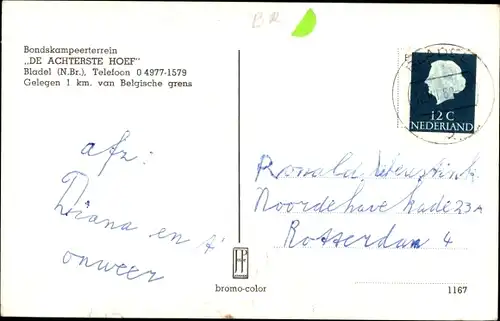 BR
Bondskampeerterrein
„DE ACHTERSTE HOEF"
Bladel (N.Br.), Telefoon 0 4977-1579
Gelegen 1 km. van Belgische grens
BLADEL
12 C
NEDERLAND
afz:
Diana en t'
onweer
Ronald
Noordehavekade 23A
Rotterdam 4
bromo-color
1167